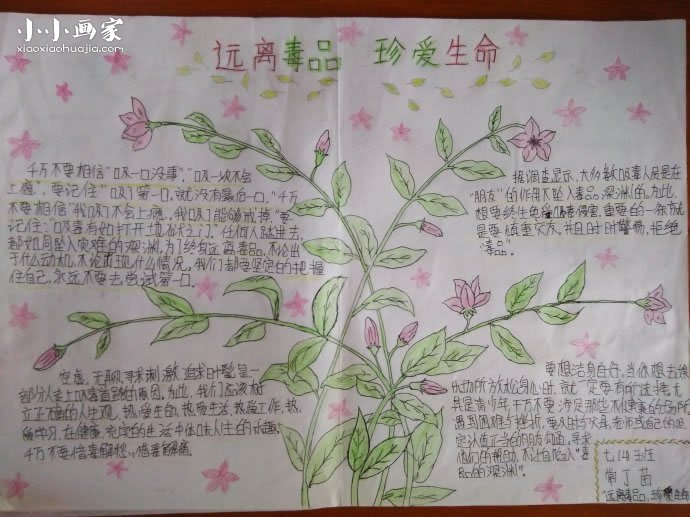 小小画家
xiaoxiaohuajia.com
远离毒品 珍爱生命
千万不要相信"吸一口没事","吸一次不会
上瘾,要记住"吸了第一口,就没有最后一口。"千万
不要相信"我吸了不会上瘾,我吸了能够戒掉"要
记住:"吸毒有如打开地狱之门。"任何人踏进去,
都如同坠入灾难的深渊,为了终身远离毒品,不论出
于什么动机,不论出现什么情况,我们都要坚定的把握
住自己,永远不要去尝试第一口。
据调查显示,大多数吸毒人员是在
"朋友"的作用下坠入毒品深渊的,为此,
想要终生免偱毒侵害,重要的一条就
是要慎重交友,并且时时警惕,拒绝
"毒品"。
空虚、无聊寻求刺激 追求时髦是一
部分人走上吸毒道路的原因,为此,我们应该树
立正确的人生观,热爱生命,热爱生活,热爱工作,热
爱学习,在健康,充实的生活中体味人生的乐趣,
千万不要借毒解愁,借毒解痛。
要想洁身自好,当你想去
场所放松身心时,就一定要有所选择,尤
其是青少年,千万不要涉足那些不健康的场所
遇到困难与挫折,要及时与父母,老师或自己的坚
定认真正当的朋友沟通,寻求
他们的帮助,不让自己陷入"毒
品的深渊"。
七(4)班
常丁茵
远离毒品,珍爱生命